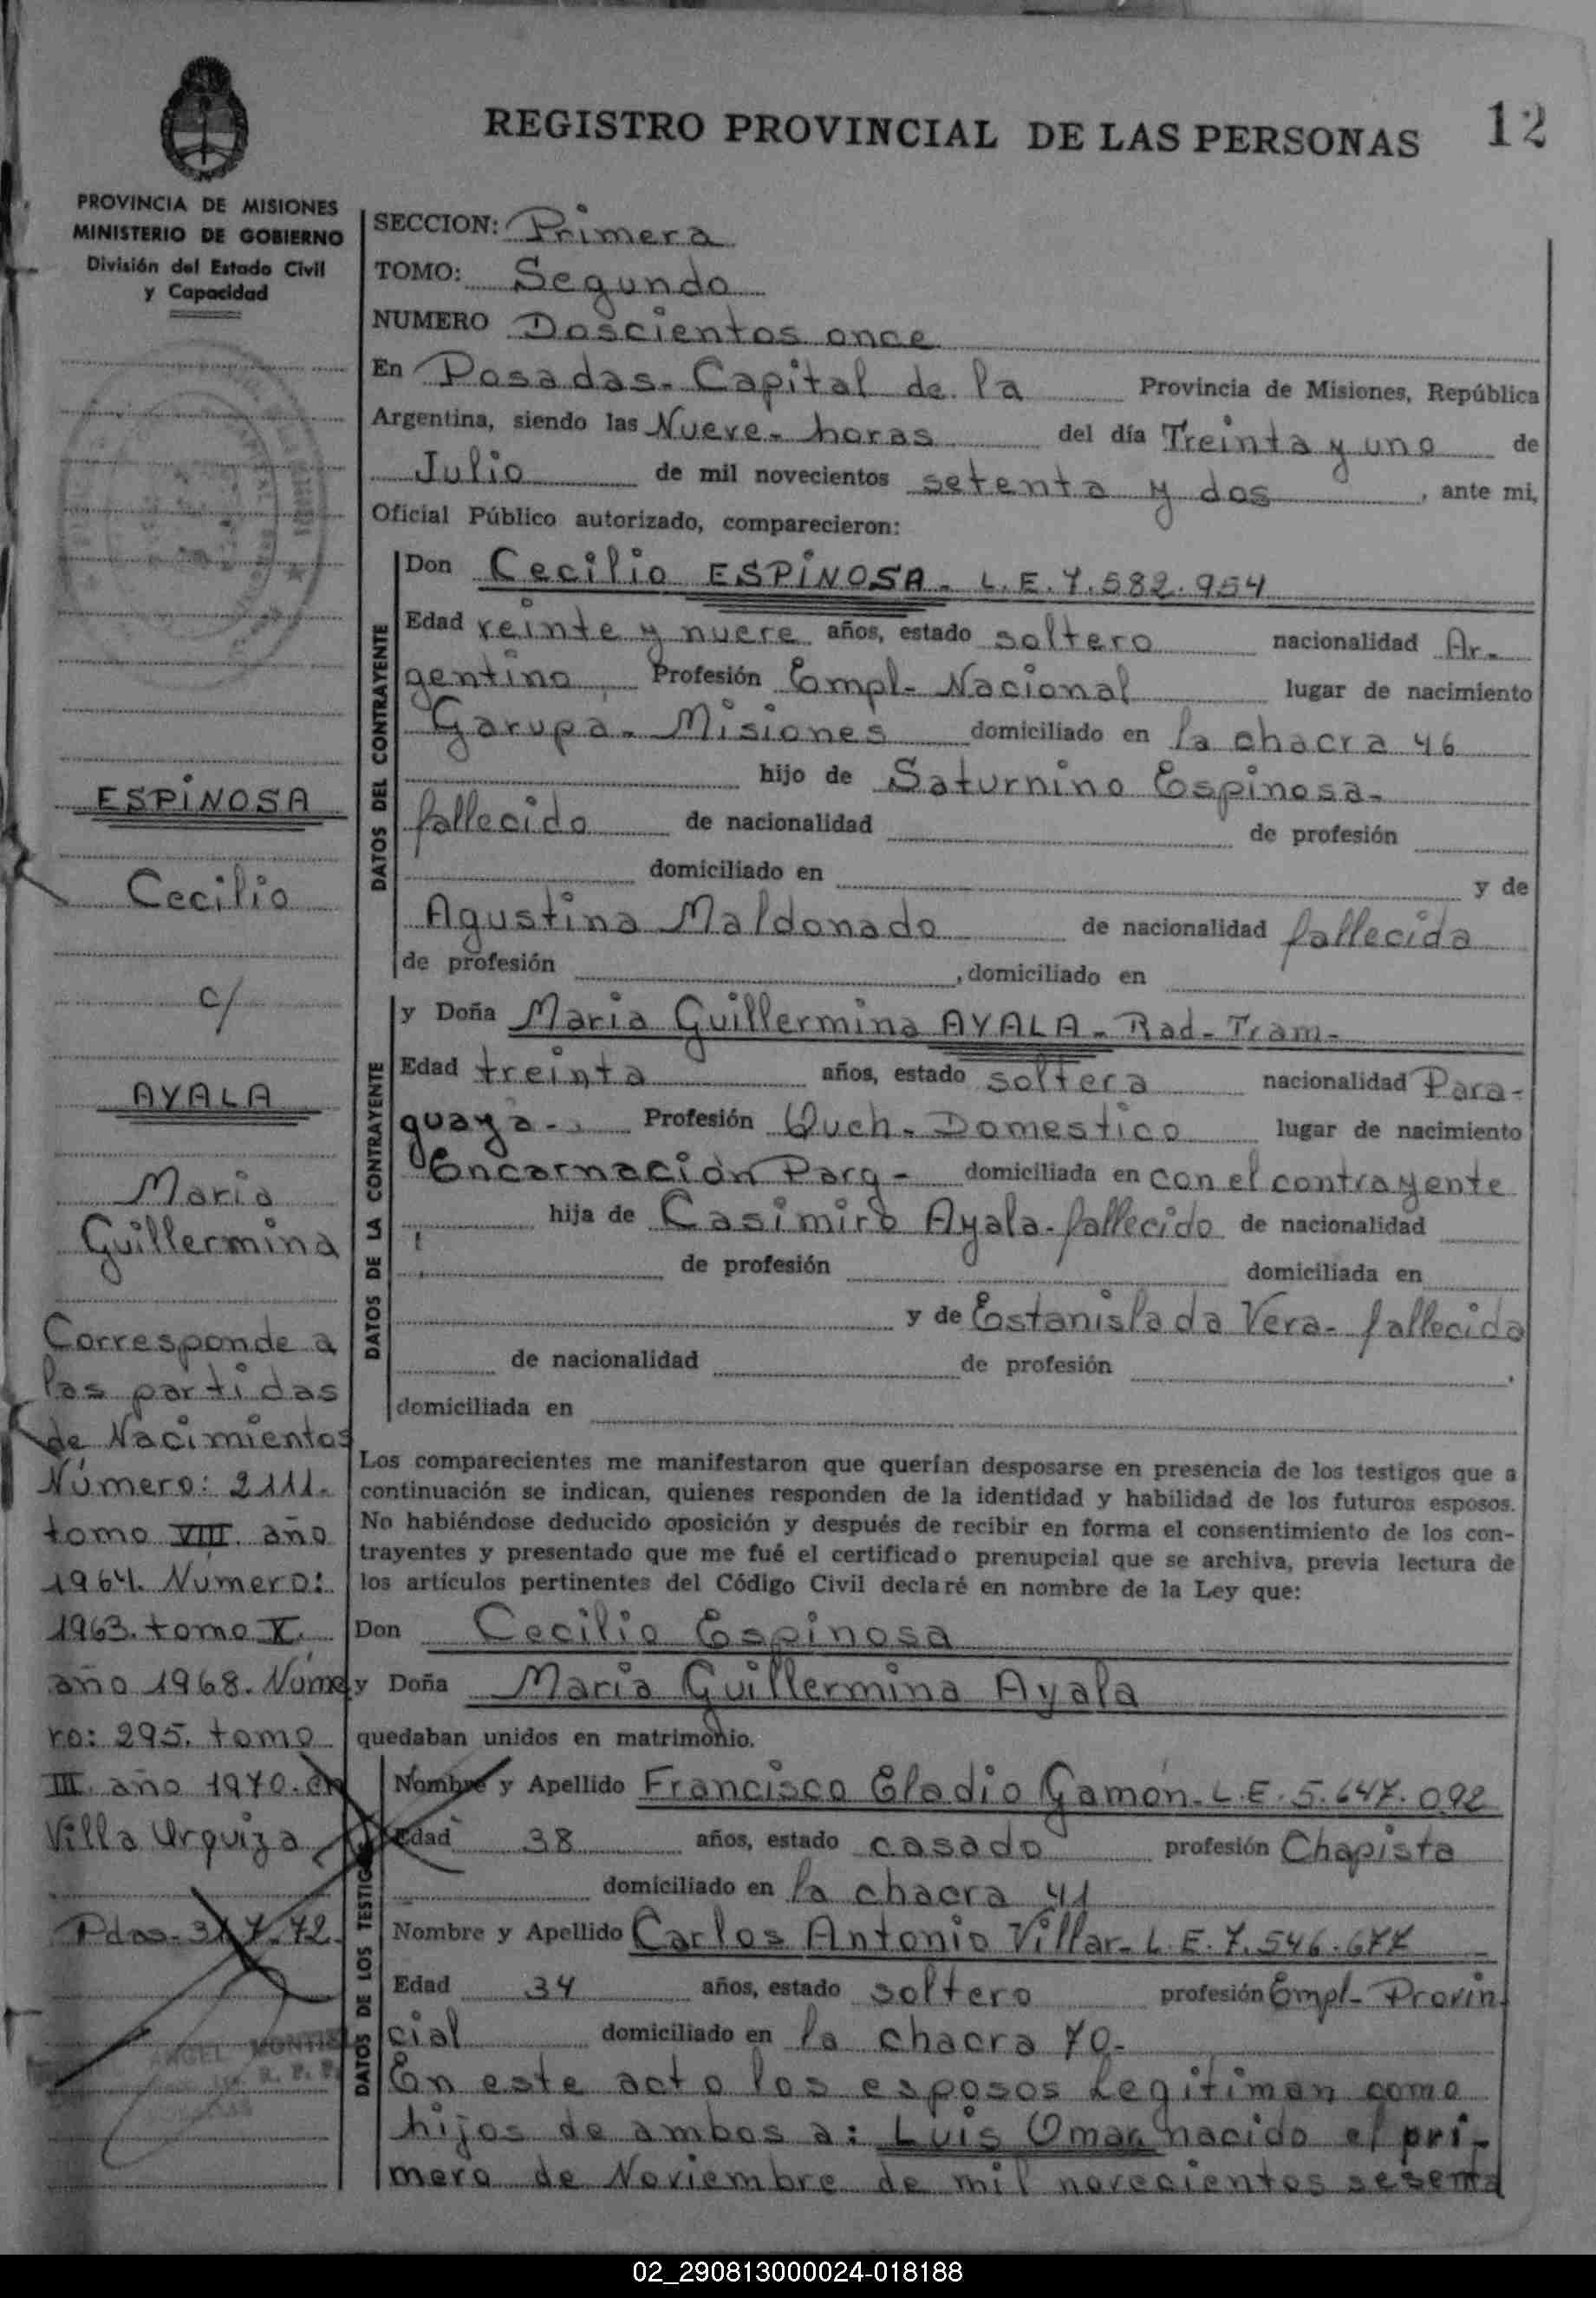 REGISTRO PROVINCIAL DE LAS PERSONAS 12
PROVINCIA DE MISIONES
MINISTERIO DE GOBIERNO
División del Estado Civil
y Capacidad
ESPINOSA
Cecilio
c/
AYALA
Maria
Guillermina
Corresponde a
las partidas
de Nacimientos
Número: 2111.
tomo VIII. año
1964. Número:
1963. tomo X.
año 1968. Núme
ro: 295. tomo
III. año 1970. en
Villa Urquiza
Pdas. 31.7.72.
ANGEL MONTIE
SECCION: Primera
TOMO: Segundo
NUMERO Doscientos once
En Posadas - Capital de la Provincia de Misiones, República
Argentina, siendo las Nueve - horas del día Treinta y uno de
Julio de mil novecientos setenta y dos, ante mi,
Oficial Público autorizado, comparecieron:
DATOS DEL CONTRAYENTE
Don Cecilio ESPINOSA - L.E. 7.582.954
Edad veinte y nueve años, estado soltero nacionalidad Ar-
gentino, Profesión Empl- Nacional lugar de nacimiento
Garupá - Misiones domiciliado en la chacra 46
hijo de Saturnino Espinosa-
fallecido de nacionalidad de profesión
domiciliado en y de
Agustina Maldonado de nacionalidad fallecida
de profesión , domiciliado en
DATOS DE LA CONTRAYENTE
y Doña Maria Guillermina AYALA - Rad - Tram-
Edad treinta años, estado soltera nacionalidad Para-
guaya-, Profesión Queh- Domestico lugar de nacimiento
Encarnación Parg - domiciliada en con el contrayente
hija de Casimiro Ayala - fallecido de nacionalidad
de profesión domiciliada en
y de Estanislada Vera - fallecida
de nacionalidad de profesión ,
domiciliada en
Los comparecientes me manifestaron que querían desposarse en presencia de los testigos que a
continuación se indican, quienes responden de la identidad y habilidad de los futuros esposos.
No habiéndose deducido oposición y después de recibir en forma el consentimiento de los con-
trayentes y presentado que me fué el certificado prenupcial que se archiva, previa lectura de
los artículos pertinentes del Código Civil declaré en nombre de la Ley que:
Don Cecilio Espinosa
y Doña Maria Guillermina Ayala
quedaban unidos en matrimonio.
DATOS DE LOS TESTIGOS
Nombre y Apellido Francisco Eladio Gamón - L.E. 5.647.092
Edad 38 años, estado casado profesión Chapista
domiciliado en la chacra 41
Nombre y Apellido Carlos Antonio Villar - L.E. 7.546.677
Edad 34 años, estado soltero profesión Empl- Provin
cial domiciliado en la chacra 70-
En este acto los esposos Legitiman como
hijos de ambos a: Luis Omar nacido el pri-
mero de Noviembre de mil novecientos sesenta
02_290813000024-018188